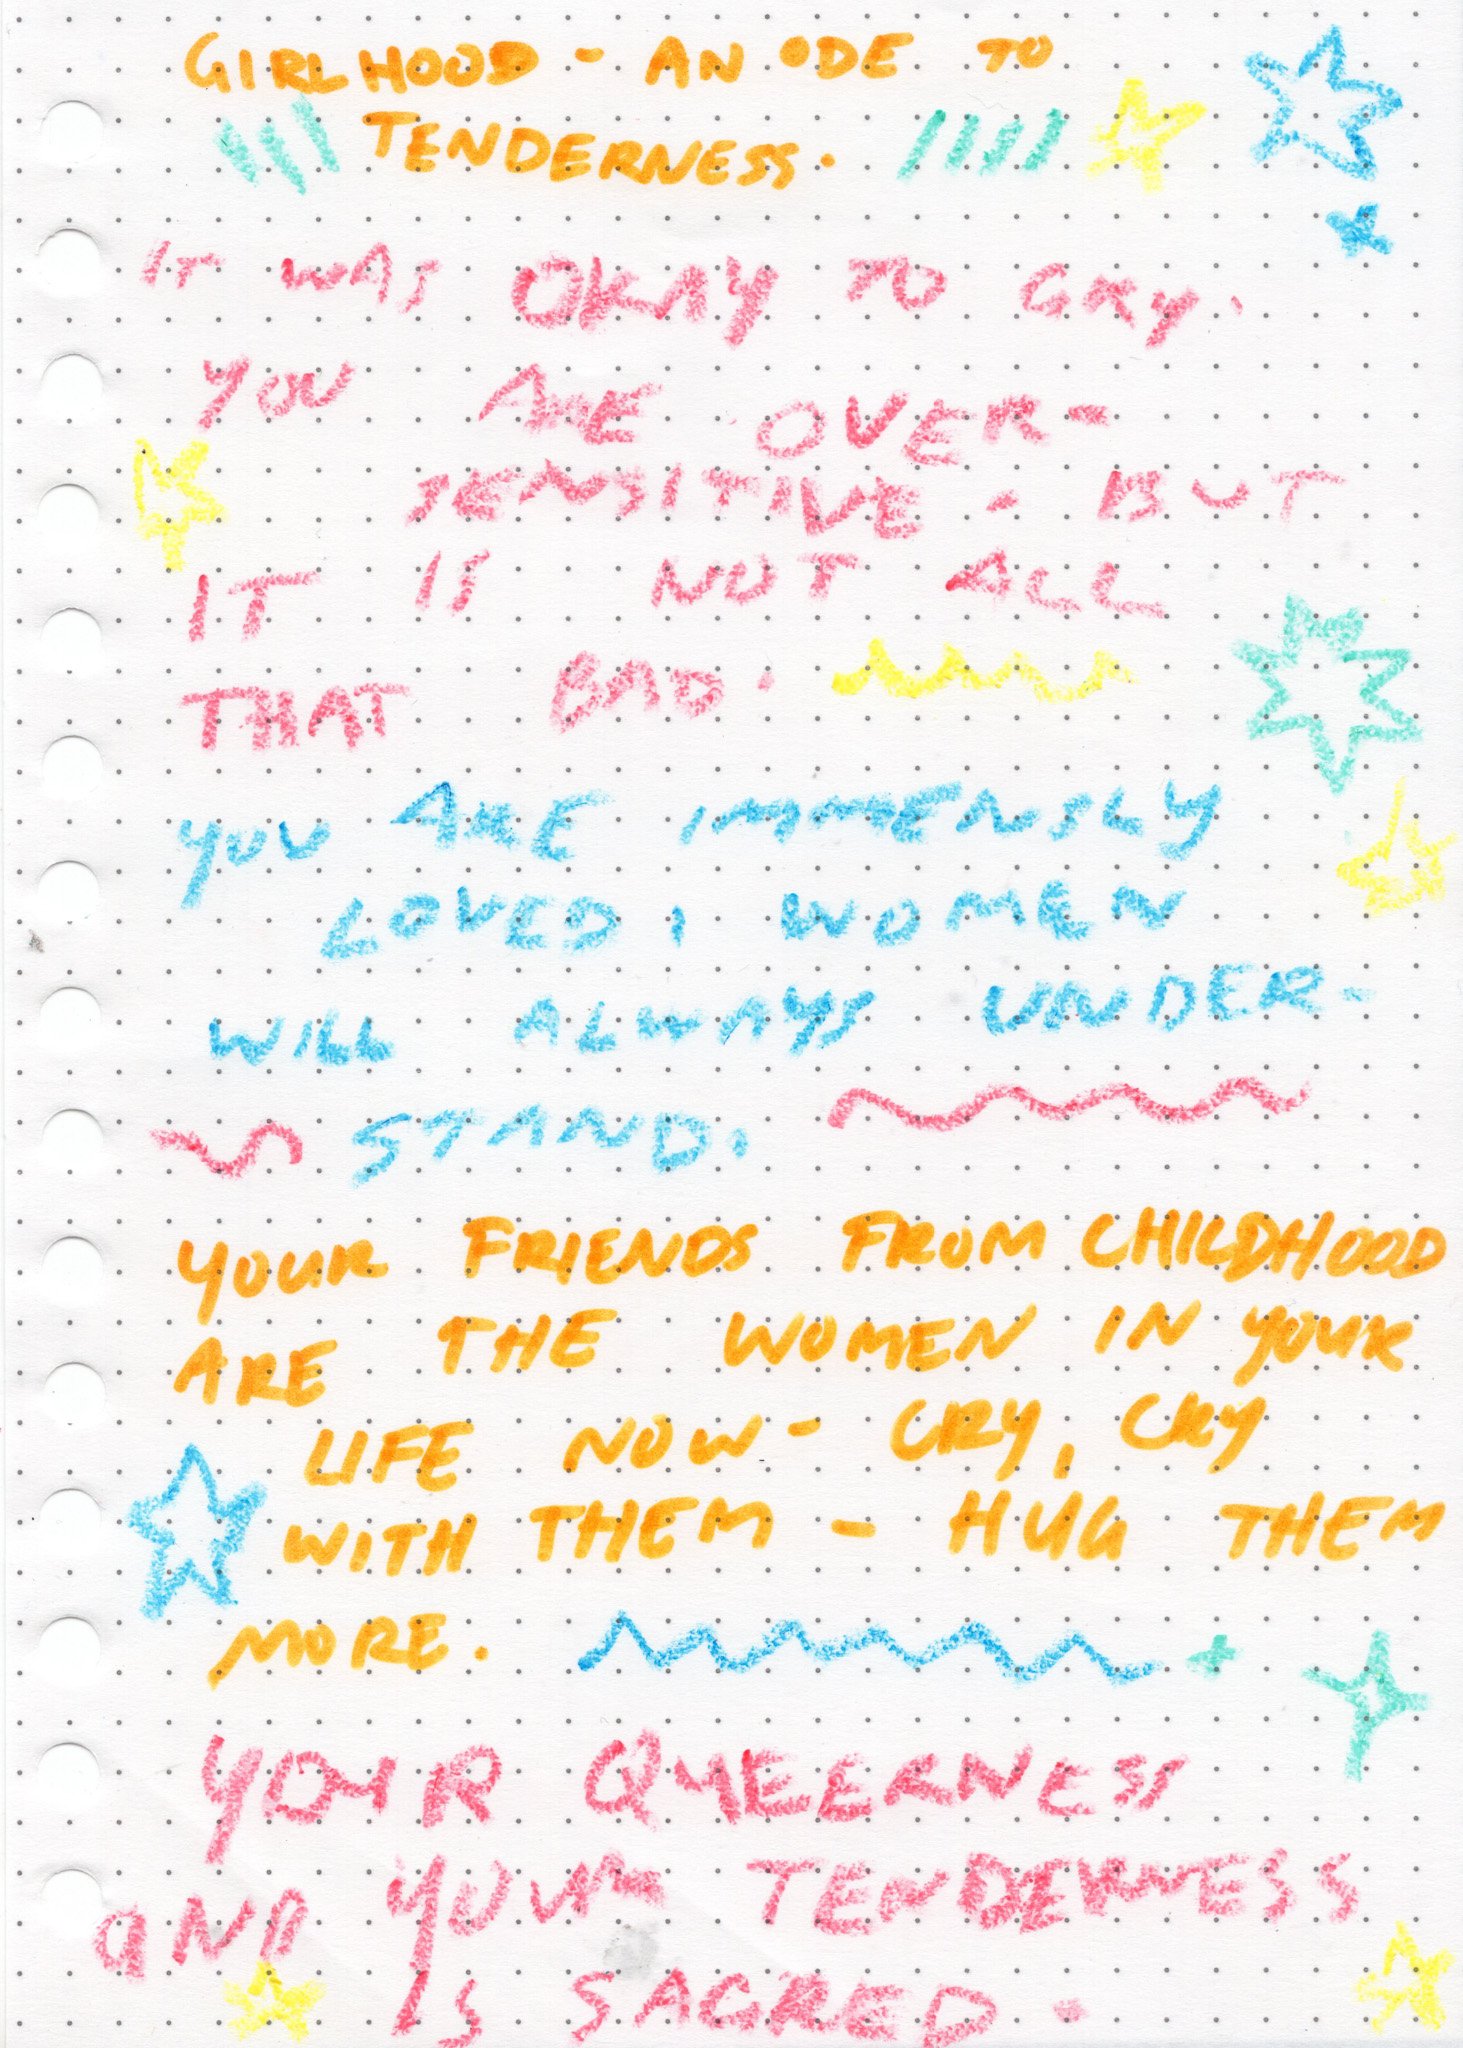 GIRLHOOD - AN ODE TO
TENDERNESS.
IT WAS OKAY TO CRY.
YOU ARE OVER-
SENSITIVE - BUT
IT IS NOT ALL
THAT BAD.
YOU ARE IMMENSLY
LOVED, WOMEN
WILL ALWAYS UNDER-
STAND.
YOUR FRIENDS FROM CHILDHOOD
ARE THE WOMEN IN YOUR
LIFE NOW - CRY, CRY
WITH THEM - HUG THEM
MORE.
YOUR QUEERNESS
AND YOUR TENDERNESS
IS SACRED.